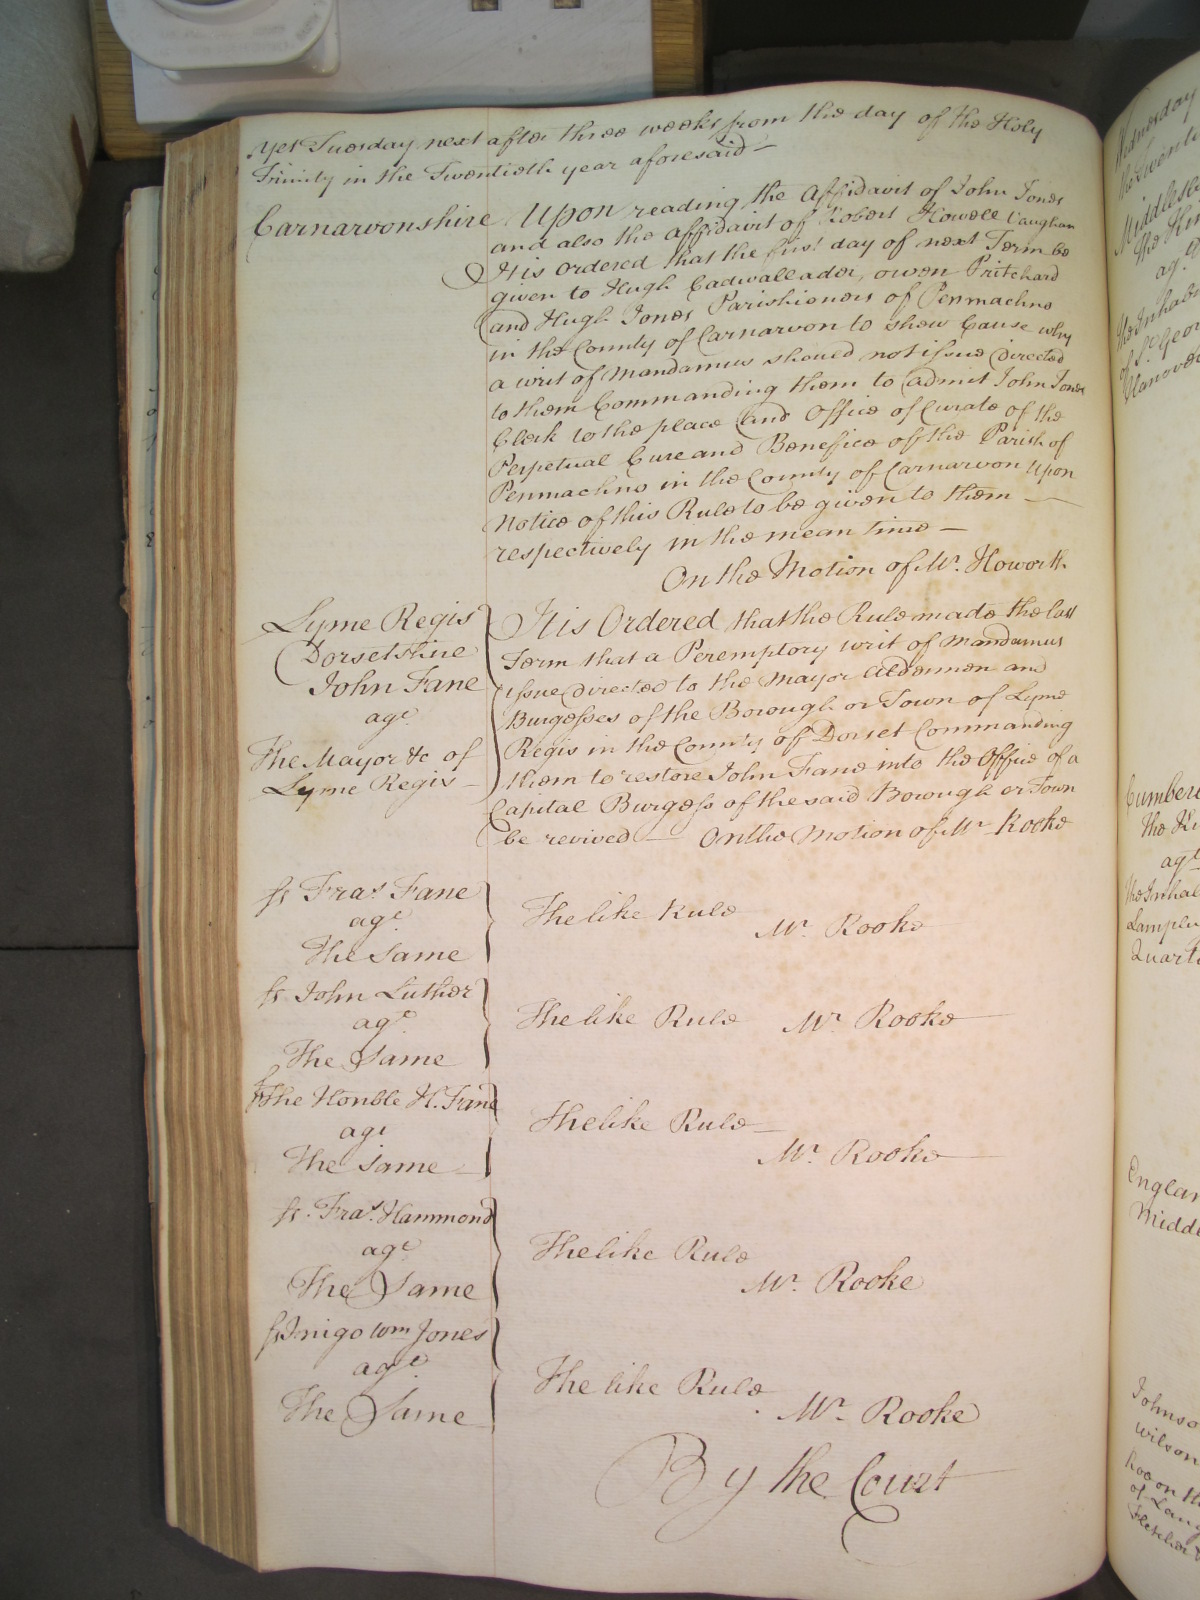 yet Tuesday next after three weeks from the day of the Holy
Trinity in the Twentieth year aforesaid –
Carnarvonshire Upon reading the Affidavit of John Jones
and also the affidavit of Robert Howell Vaughan
It is ordered that the first day of next Term be
given to Hugh Cadwallader, Owen Pritchard
and Hugh Jones Parishioners of Penmachno
in the County of Carnarvon to shew Cause why
a writ of Mandamus should not issue directed
to them Commanding them to admit John Jones
Clerk to the place and Office of Curate of the
Perpetual Cure and Benefice of the Parish of
Penmachno in the County of Carnarvon Upon
Notice of this Rule to be given to them –
respectively in the mean time –
On the Motion of Mr. Howorth
Lyme Regis
Dorsetshire
John Fane
agt
The Mayor &c of
Lyme Regis –
It is Ordered that the Rule made the last
Term that a Peremptory writ of Mandamus
issue directed to the Mayor Aldermen and
Burgesses of the Borough or Town of Lyme
Regis in the County of Dorset Commanding
them to restore John Fane into the Office of a
Capital Burgess of the said Borough or Town
be revived – On the Motion of Mr Rooke
Fras Fane
agt
The Same
The like Rule
Mr. Rooke
John Luther
agt
The Same
The like Rule Mr. Rooke
The Honble H. Fane
agt
The Same
The like Rule –
Mr. Rooke
Fras. Hammond
agt
The Same
The like Rule
Mr. Rooke
Inigo Wm Jones
agt
The Same
The like Rule
Mr. Rooke
By the Court
Wednesday
Middlesex
the Kin
ag
the Inhab
of St. Geor
Hanover
Cumber
the Ki
agt
the Inhal
Lamplu
Quart
Englan
Midd
Johnso
Wilson
of Lan
Fletcher